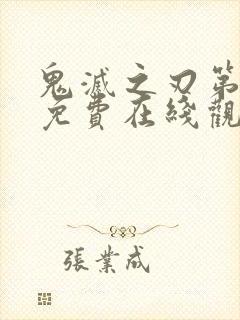 鬼滅之刃第
免費在綫觀
張業成